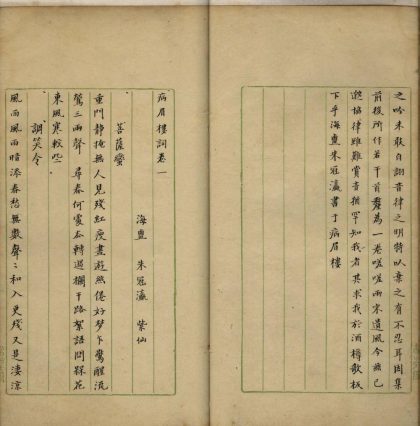 之吟未敢自詡音律之明特以棄之有不忍耳因集
前後所作若干首釐為一卷嗟嗟雨宋遺風今無已
邈協律雖難賞音猶罕知我者其求我於酒樽歌板
下乎海鹽朱冠瀛書于病眉樓
病眉樓詞卷一
海鹽 朱冠瀛 紫仙
菩薩蠻
重門靜掩無人見殘紅瘦盡遊絲倦好夢乍驚醒流
鶯三兩聲 尋春何處去轉過欄干路絮語問穠花
東風寒較些
調笑令
風雨風雨暗添春愁無數聲聲和入更殘又是淒涼